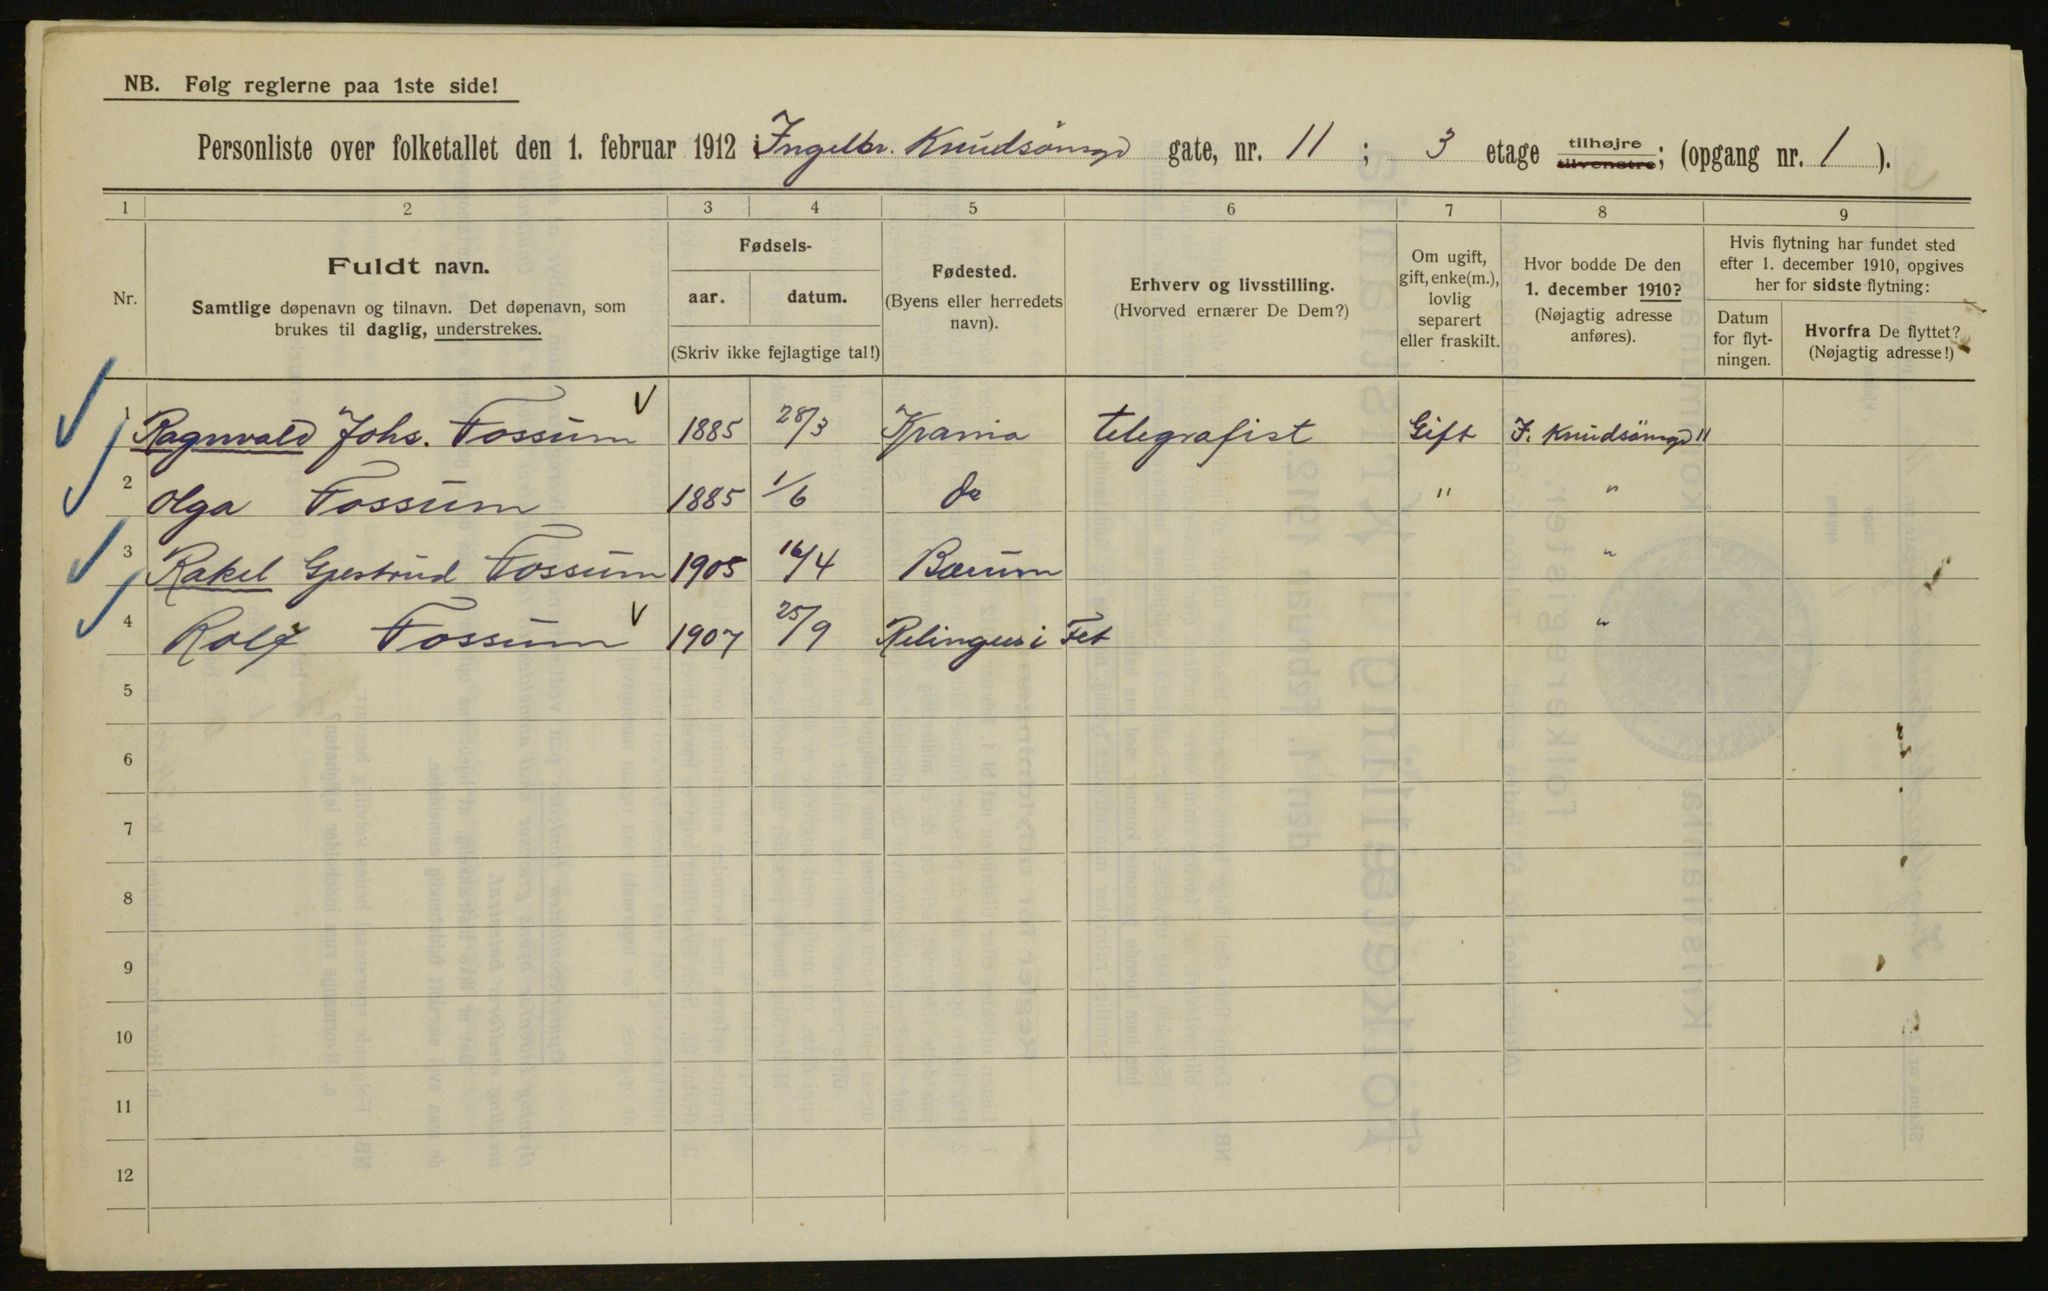 NB. Følg reglerne paa 1ste side!
Personliste over folketallet den 1. februar 1912 i Ingelbr. Knudsønsgd gate, nr. 11 ; 3 etage tilhøjre tilvenstre; (opgang nr. 1 ).
1 2 3 4 5 6 7 8 9
Nr.
Fuldt navn.
Samtlige døpenavn og tilnavn. Det døpenavn, som
brukes til daglig, understrekes.
Fødsels-
aar. datum.
(Skriv ikke fejlagtige tal!)
Fødested.
(Byens eller herredets
navn).
Erhverv og livsstilling.
(Hvorved ernærer De Dem?)
Om ugift,
gift, enke(m.),
lovlig
separert
eller fraskilt.
Hvor bodde De den
1. december 1910?
(Nøjagtig adresse
anføres).
Hvis flytning har fundet sted
efter 1. december 1910, opgives
her for sidste flytning:
Datum
for flyt-
ningen.
Hvorfra De flyttet?
(Nøjagtig adresse!)
1 Ragnvald Johs. Fossum 1885 28/3 Krania telegrafist Gift I. Knudsønsgd 11
2 Olga Fossum 1885 1/6 do " "
3 Rakel Gjertrud Fossum 1905 16/4 Bærum "
4 Rolf Fossum 1907 25/9 Relingen i Fet "
5
6
7
8
9
10
11
12